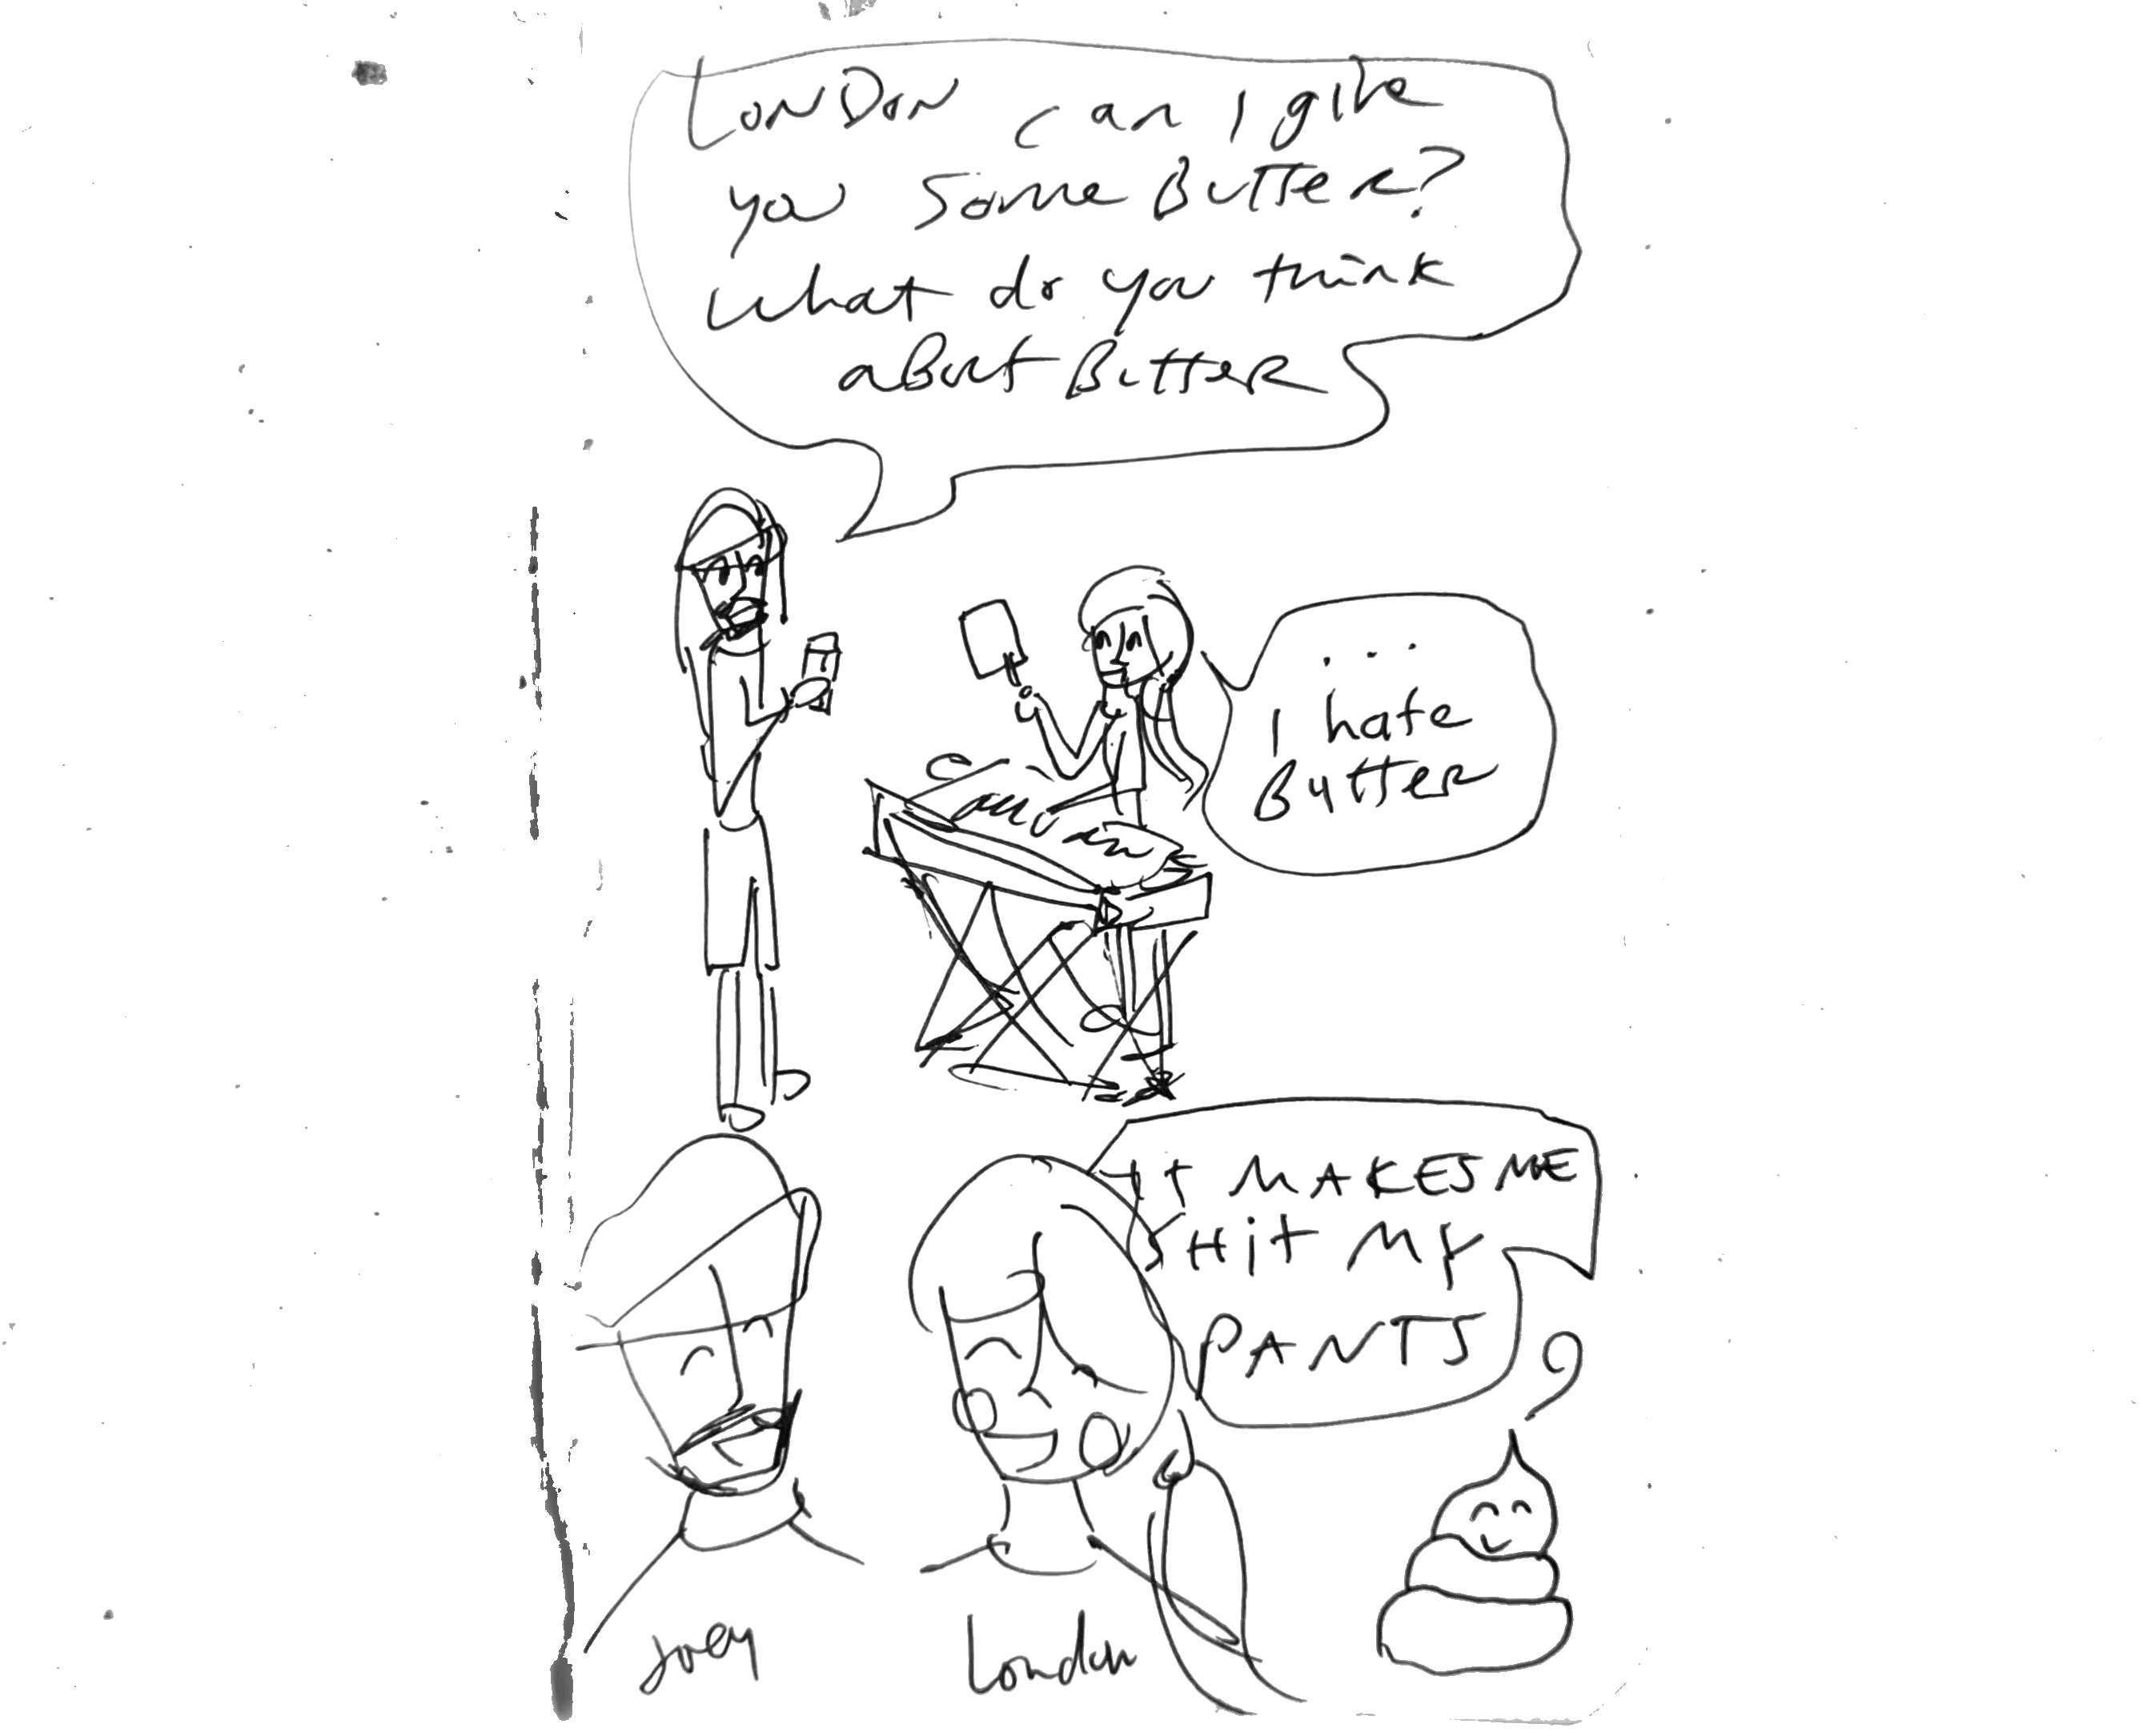 LONDON can I give
you some BUTTER?
what do you think
aBout ButteR
...
I hate
ButteR
It MAKES ME
SHit MY
PANTS
Joey
London